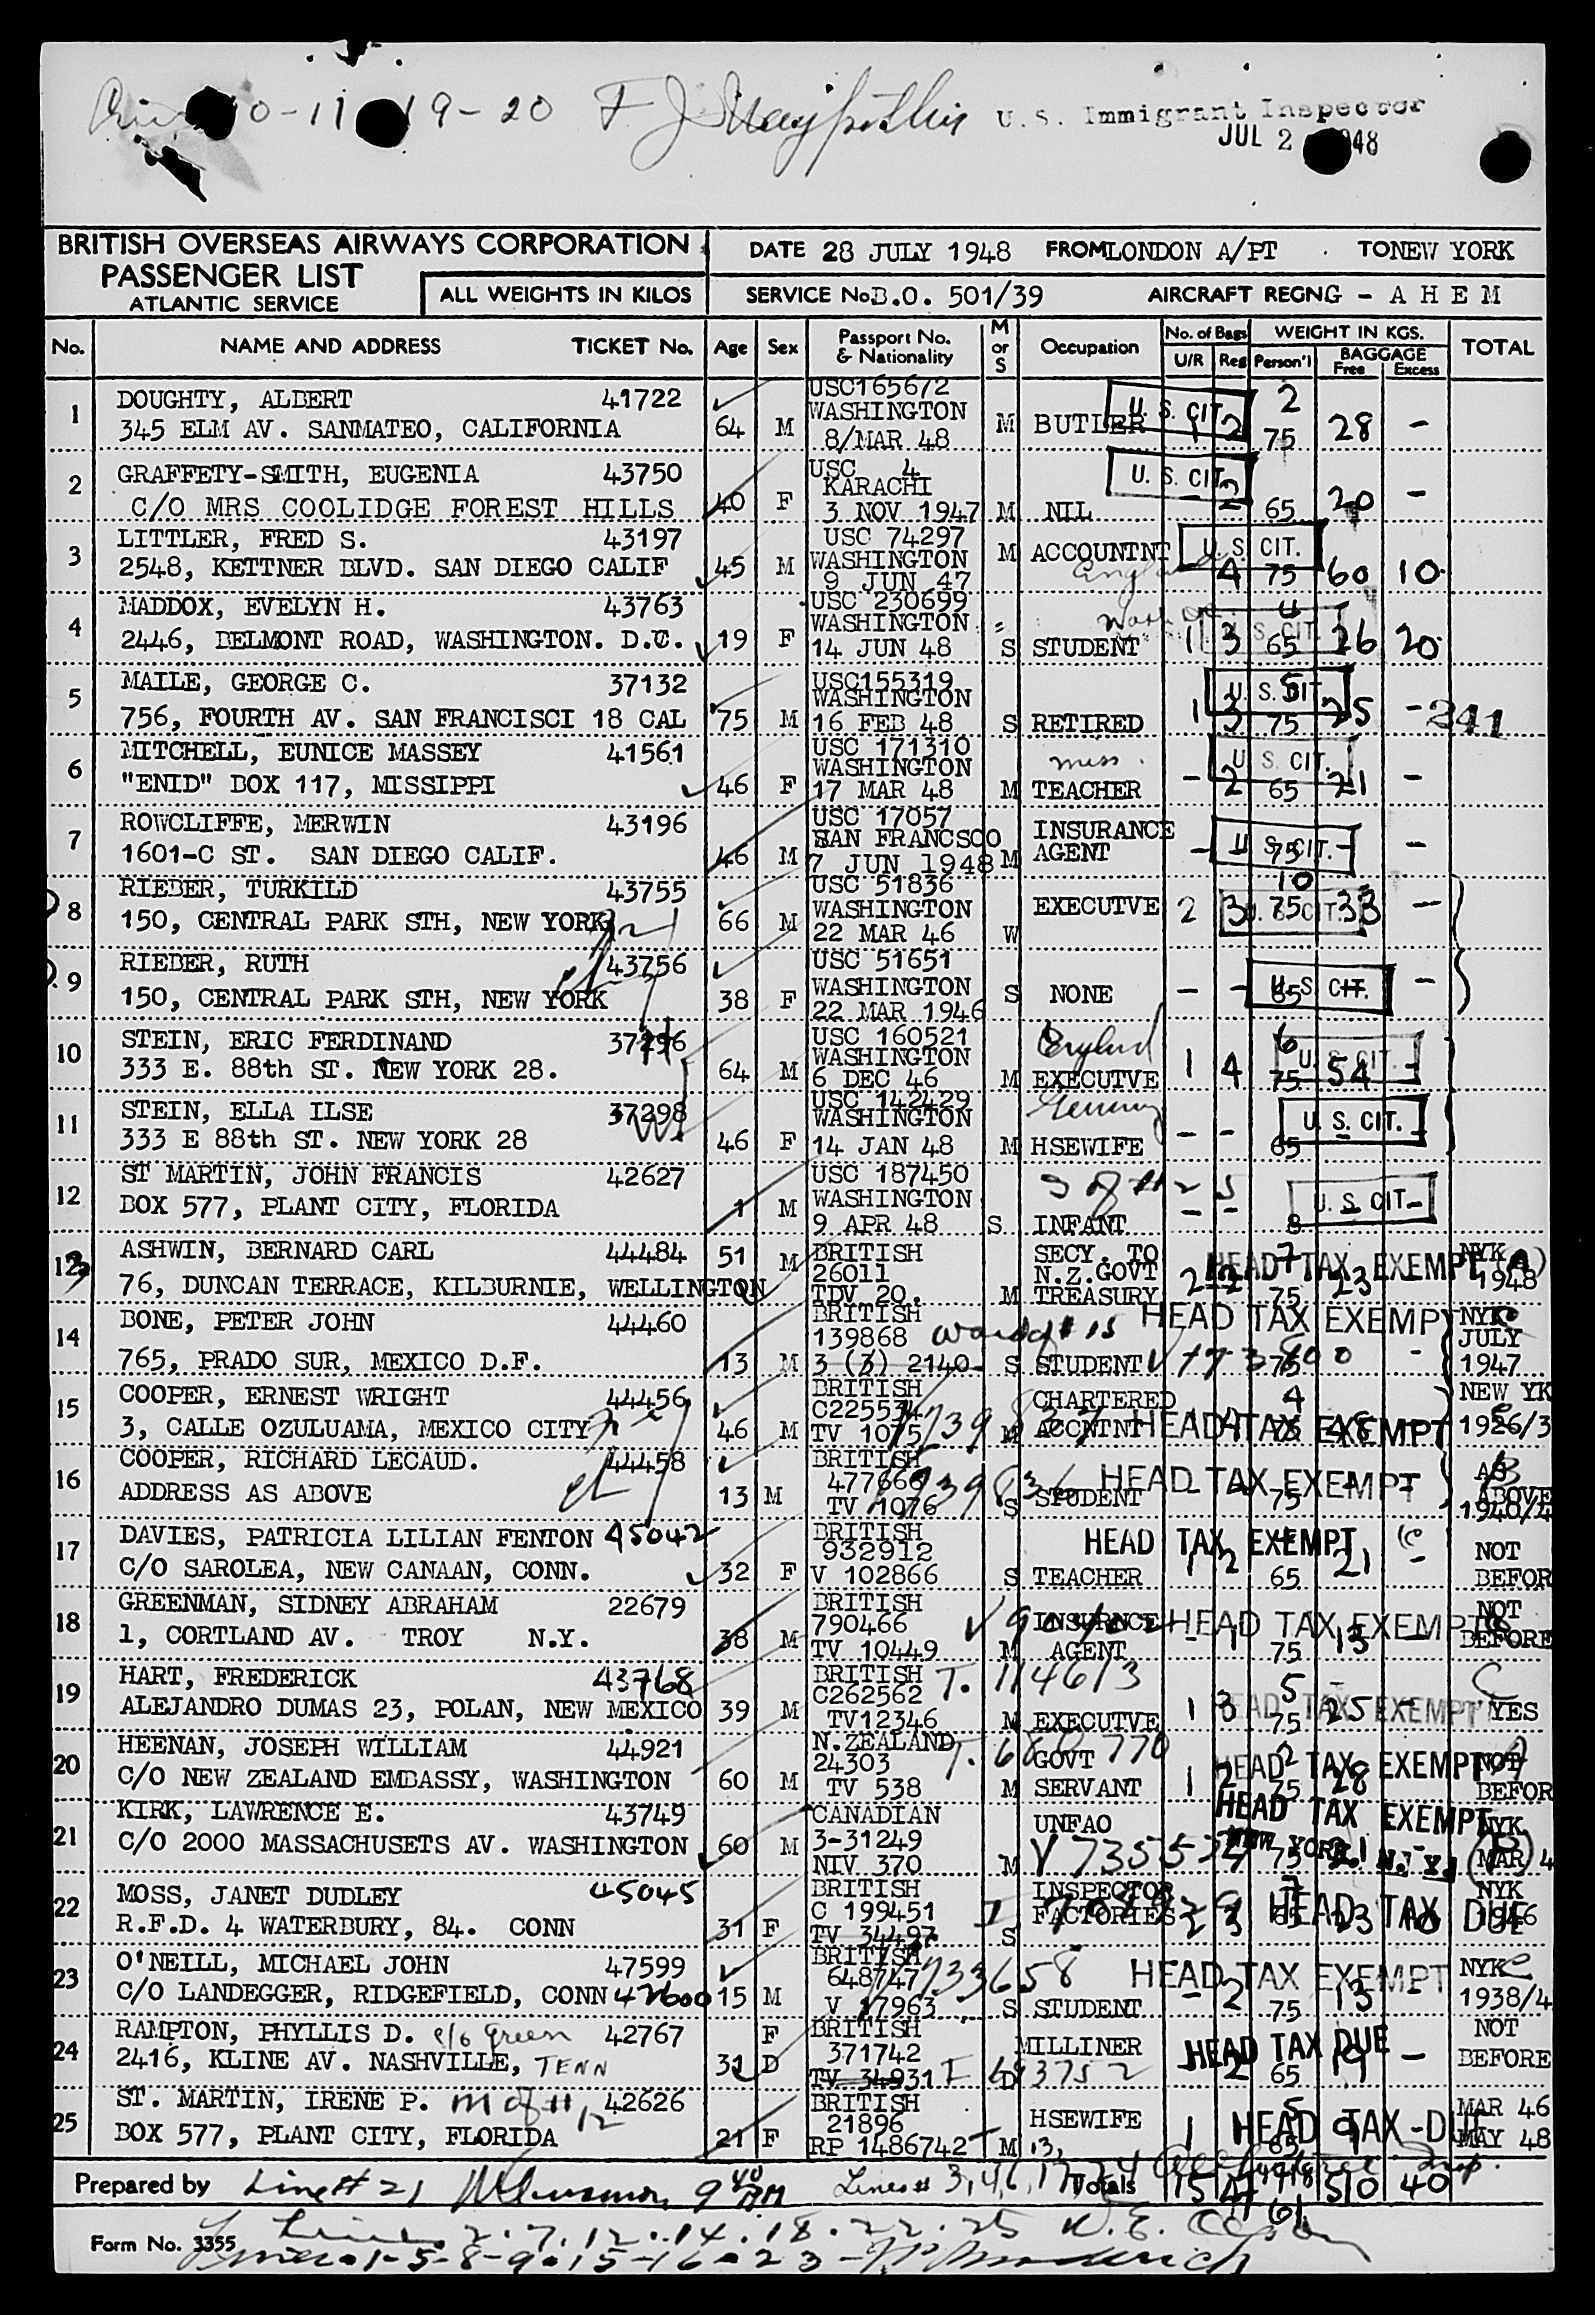 0-11 19-20 F J U.S. Immigrant Inspector
JUL 2 48
BRITISH OVERSEAS AIRWAYS CORPORATION
PASSENGER LIST
ATLANTIC SERVICE
ALL WEIGHTS IN KILOS
DATE 28 JULY 1948 FROM LONDON A/PT TO NEW YORK
SERVICE No B.O. 501/39 AIRCRAFT REGN G - A H E M
No. NAME AND ADDRESS TICKET No. Age Sex Passport No. & Nationality M or S Occupation No. of Bags U/R Reg WEIGHT IN KGS. Person'l BAGGAGE Free Excess TOTAL
1 DOUGHTY, ALBERT 41722 USC165672 U. S. CIT. 2
345 ELM AV. SANMATEO, CALIFORNIA 64 M WASHINGTON M BUTLER 1 2 75 28 -
8/MAR 48
2 GRAFFETY-SMITH, EUGENIA 43750 USC 4 U. S. CIT.
KARACHI
C/O MRS COOLIDGE FOREST HILLS 40 F 3 NOV 1947 M NIL 2 65 20 -
3 LITTLER, FRED S. 43197 USC 74297 U. S. CIT.
2548, KETTNER BLVD. SAN DIEGO CALIF 45 M WASHINGTON M ACCOUNTNT England 4 75 60 10
9 JUN 47
4 MADDOX, EVELYN H. 43763 USC 230699
WASHINGTON
2446, BELMONT ROAD, WASHINGTON. D.C. 19 F 14 JUN 48 S STUDENT 1 3 65 26 20
S. CIT.
5 MAILE, GEORGE C. 37132 USC155319 U. S. CIT. 5
WASHINGTON
756, FOURTH AV. SAN FRANCISCI 18 CAL 75 M 16 FEB 48 S RETIRED 1 3 75 25 - 241
6 MITCHELL, EUNICE MASSEY 41561 USC 171310 miss. U. S. CIT.
WASHINGTON
"ENID" BOX 117, MISSIPPI 46 F 17 MAR 48 M TEACHER - 2 65 21 -
7 ROWCLIFFE, MERWIN 43196 USC 17057 INSURANCE
SAN FRANCSCO
1601-C ST. SAN DIEGO CALIF. 46 M 7 JUN 1948 M AGENT - U. S. CIT. 75 -
8 RIEBER, TURKILD 43755 USC 51836 10
150, CENTRAL PARK STH, NEW YORK 66 M WASHINGTON W EXECUTVE 2 3 75 33 -
22 MAR 46 U. S. CIT.
9 RIEBER, RUTH 43756 USC 51651
150, CENTRAL PARK STH, NEW YORK 38 F WASHINGTON S NONE - - 65 U. S. CIT. -
22 MAR 1946
10 STEIN, ERIC FERDINAND 37296 USC 160521 England 6
WASHINGTON
333 E. 88th ST. NEW YORK 28. 64 M 6 DEC 46 M EXECUTVE 1 4 75 54 -
U. S. CIT.
11 STEIN, ELLA ILSE 37298 USC 142429 Germany
WASHINGTON U. S. CIT.
333 E 88th ST. NEW YORK 28 46 F 14 JAN 48 M HSEWIFE - - 65
12 ST MARTIN, JOHN FRANCIS 42627 USC 187450 S of # 25
BOX 577, PLANT CITY, FLORIDA 1 M WASHINGTON - - U. S. CIT.
9 APR 48 S INFANT 8
13 ASHWIN, BERNARD CARL 44484 51 M BRITISH SECY. TO 7 NYK
26011 N.Z.GOVT HEAD TAX EXEMPT (A) 1948
76, DUNCAN TERRACE, KILBURNIE, WELLINGTON TDV 20. M TREASURY 2 2 75 23
14 BONE, PETER JOHN 44460 BRITISH HEAD TAX EXEMPT NYK
139868 ward of # 15 JULY
765, PRADO SUR, MEXICO D.F. 13 M 3 (3) 2140 S STUDENT 75 - 1947
15 COOPER, ERNEST WRIGHT 44456 BRITISH CHARTERED 4 NEW YK
C225534
3, CALLE OZULUAMA, MEXICO CITY 46 M TV 1075 M ACCNTNT HEAD TAX EXEMPT 4 75 48 1926/3
16 COOPER, RICHARD LECAUD. 44458 BRITISH HEAD TAX EXEMPT AS
477666 ABOVE
ADDRESS AS ABOVE 13 M TV 1076 S STUDENT 75 - - 1940/4
17 DAVIES, PATRICIA LILIAN FENTON 45042 BRITISH HEAD TAX EXEMPT (c
932912 NOT
C/O SAROLEA, NEW CANAAN, CONN. 32 F V 102866 S TEACHER 1 2 65 21 - BEFOR
18 GREENMAN, SIDNEY ABRAHAM 22679 BRITISH INSURNCE HEAD TAX EXEMPT NOT
790466
1, CORTLAND AV. TROY N.Y. 38 M TV 10449 M AGENT - 1 75 13 - BEFORE
19 HART, FREDERICK 43768 BRITISH T. 114613 5 C
C262562 HEAD TAX EXEMPT
ALEJANDRO DUMAS 23, POLAN, NEW MEXICO 39 M TV12346 M EXECUTVE 1 3 75 25 - YES
20 HEENAN, JOSEPH WILLIAM 44921 N.ZEALAND T. 680770 GOVT HEAD TAX EXEMPT NOT
24303 2
C/O NEW ZEALAND EMBASSY, WASHINGTON 60 M TV 538 M SERVANT 1 2 75 28 BEFOR
21 KIRK, LAWRENCE E. 43749 CANADIAN UNFAO HEAD TAX EXEMPT NYK
C/O 2000 MASSACHUSETS AV. WASHINGTON 60 M 3-31249 NEW YORK, N. Y. (B)
NIV 370 M 75 21 MAR 4
22 MOSS, JANET DUDLEY 45045 BRITISH INSPECTOR 7 NYK
C 199451 HEAD TAX DUE
R.F.D. 4 WATERBURY, 84. CONN 31 F TV 34497 S FACTORIES 2 3 65 23 10 1946
23 O'NEILL, MICHAEL JOHN 47599 BRITISH 733658 HEAD TAX EXEMPT NYK
648747
C/O LANDEGGER, RIDGEFIELD, CONN 47600 15 M V 17963 S STUDENT - 2 75 13 - 1938/4
24 RAMPTON, PHYLLIS D. c/o Green 42767 F BRITISH MILLINER NOT
2416, KLINE AV. NASHVILLE, TENN 31 D 371742 HEAD TAX DUE BEFORE
TV 34931 I 693752 D 2 65 19 -
25 ST. MARTIN, IRENE P. M of # 12 42626 BRITISH HSEWIFE 5 MAR 46
21896 HEAD TAX DUE
BOX 577, PLANT CITY, FLORIDA 21 F RP 1486742 M 1 65 9 - MAY 48
Prepared by Line # 21 9 40 AM Lines # 3, 4, 6, 17, 24 Totals 15 47 1718 510 40
61
Form No. 3355
Lines 2.7.12.14.18.22.25 W. E.
Lines 1-5-8-9-15-16-23